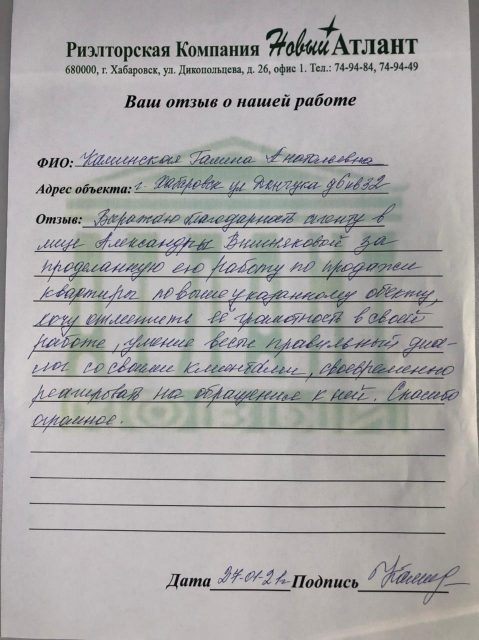 Риэлторская Компания Новый Атлант
680000, г. Хабаровск, ул. Дикопольцева, д. 26, офис 1. Тел.: 74-94-84, 74-94-49
Ваш отзыв о нашей работе
ФИО: Каминская Галина Анатольевна
Адрес объекта: г Хабаровск ул Панчука д6 кв32
Отзыв: Выражаю благодарность агенту в
лице Александры Вишняковой за
проделанную ею работу по продаже
квартиры по вышеуказанному обекту,
хочу отметить её грамотность в своей
работе, умение вести правильный диа-
лог со своими клиентами, своевременно
реагировать на обращение к ней. Спасибо
огромное.
Дата 27-01-21г Подпись